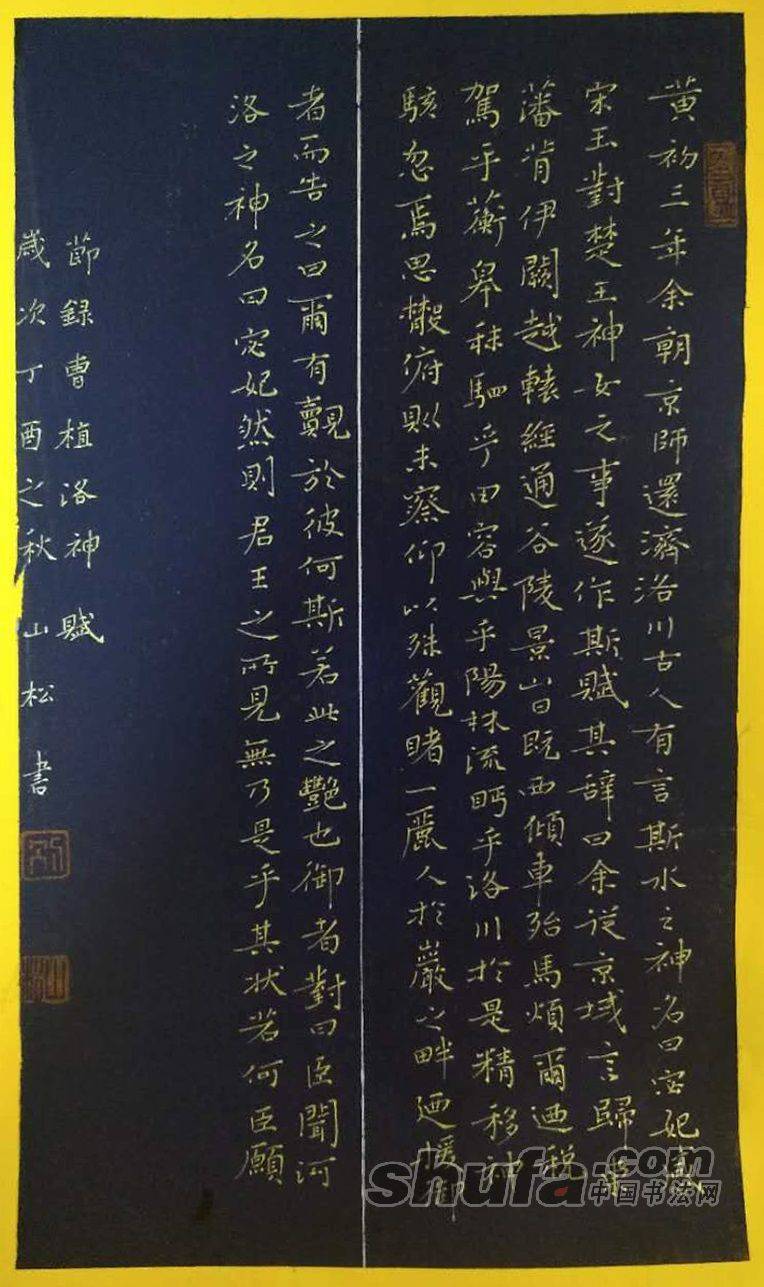 黃初三年余朝京師還濟洛川古人有言斯水之神名曰宓妃感
宋玉對楚王神女之事遂作斯賦其辭曰余從京域言歸東
藩背伊闕越轘經通谷陵景山日既西傾車殆馬煩爾迺稅
駕乎蘅皋秣駟乎田容與乎陽林流眄乎洛川於是精移神
駭忽焉思散俯則未察仰以殊觀睹一麗人於巖之畔迺援御
者而告之曰爾有覿於彼何斯若此之艷也御者對曰臣聞河
洛之神名曰宓妃然則君王之所見無乃是乎其狀若何臣願
節録曹植洛神賦
歲次丁酉之秋山松書
shufa.com
中国书法网